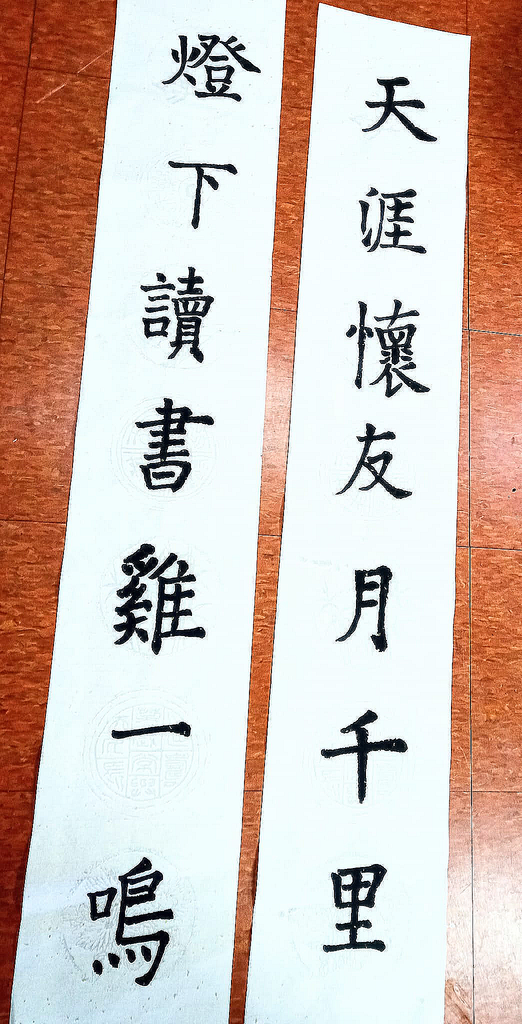 天涯懷友月千里
燈下讀書雞一鳴